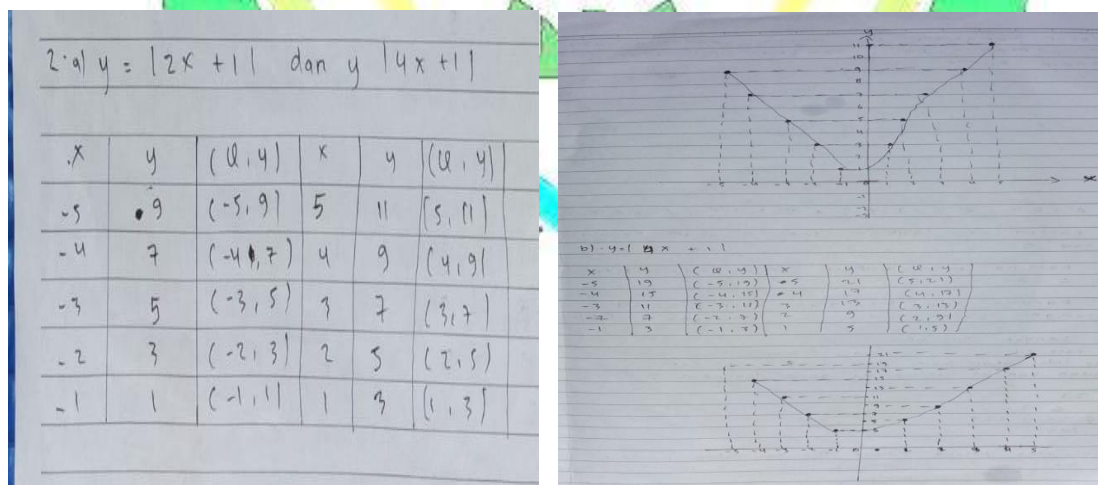 2.a) y = |2x + 1| dan y |4x + 1|
x y (x, y) x y (x, y)
-5 9 (-5, 9) 5 11 (5, 11)
-4 7 (-4, 7) 4 9 (4, 9)
-3 5 (-3, 5) 3 7 (3, 7)
-2 3 (-2, 3) 2 5 (2, 5)
-1 1 (-1, 1) 1 3 (1, 3)
y
11
10
9
8
7
6
5
4
3
2
1
-5 -4 -3 -2 -1 0 1 2 3 4 5 x
-1
-2
b) y = | 4x + 1 |
x y (x, y) x y (x, y)
-5 19 (-5, 19) 5 21 (5, 21)
-4 15 (-4, 15) 4 17 (4, 17)
-3 11 (-3, 11) 3 13 (3, 13)
-2 7 (-2, 7) 2 9 (2, 9)
-1 3 (-1, 3) 1 5 (1, 5)
21
19
17